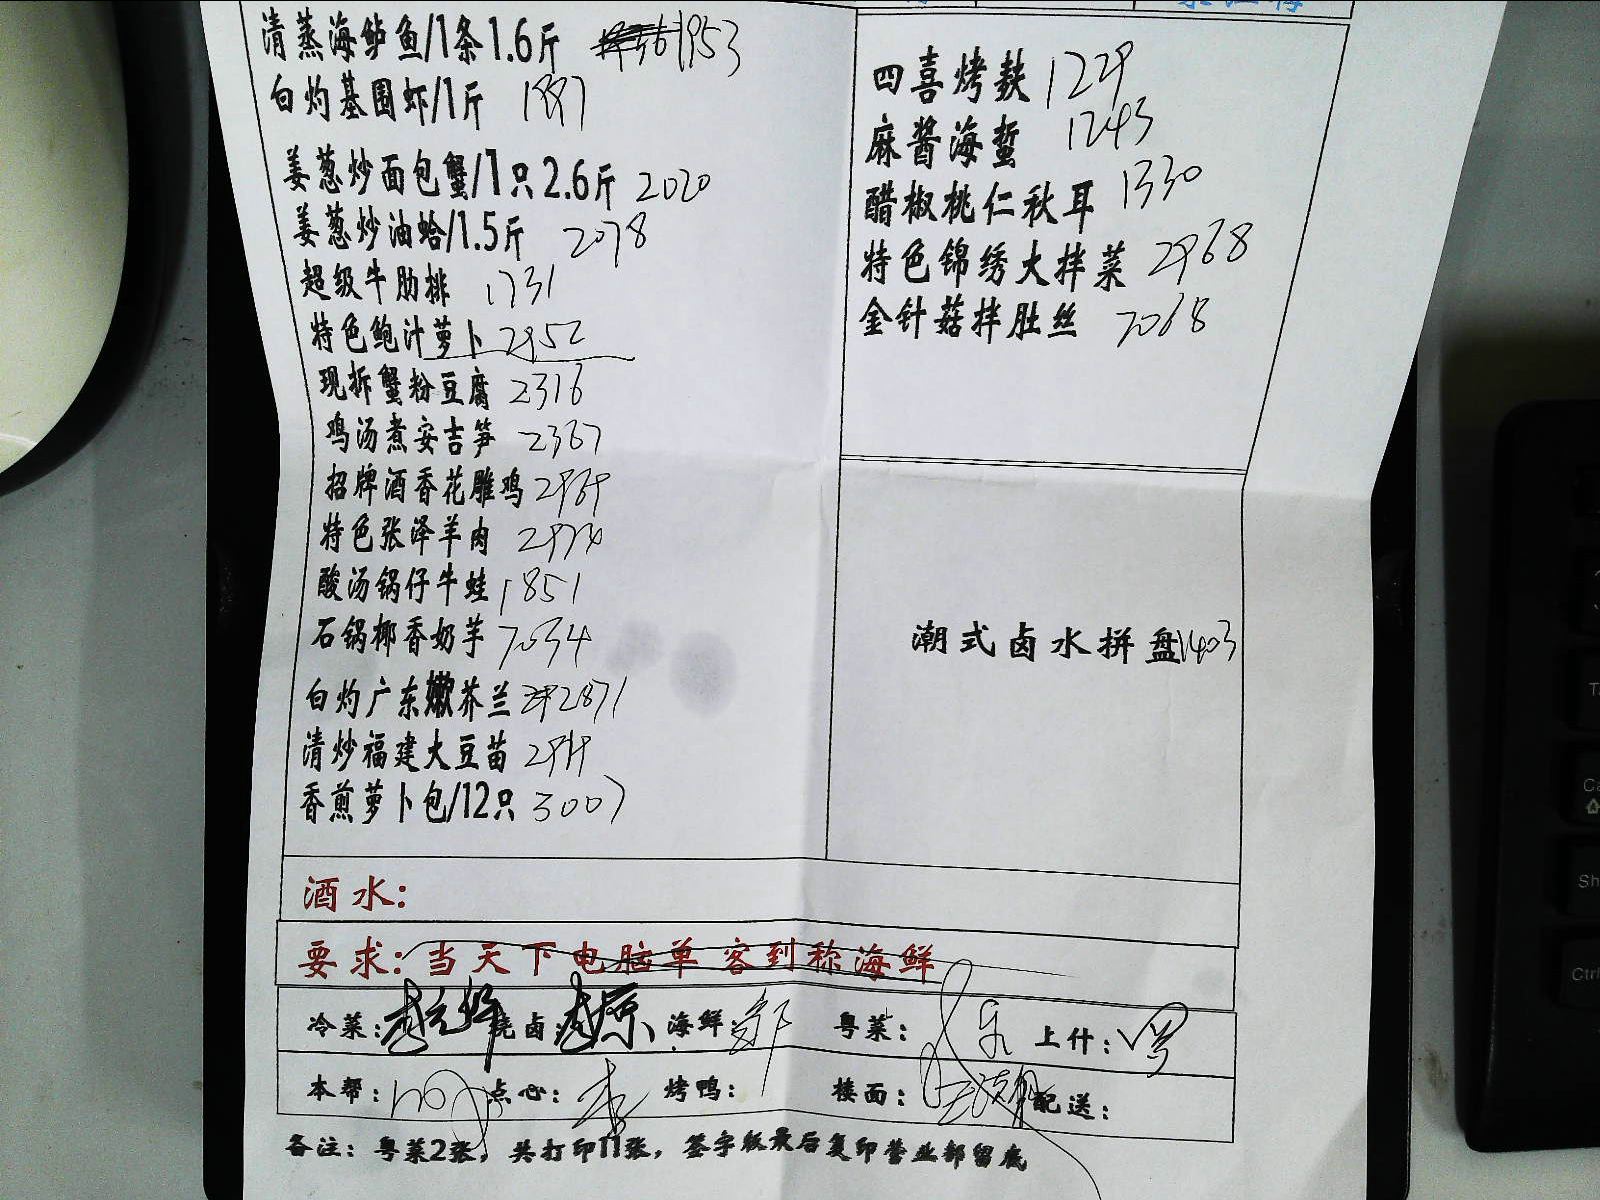 清蒸海鲈鱼/1条1.6斤 1953
白灼基围虾/1斤 1997
姜葱炒面包蟹/1只2.6斤 2020
姜葱炒油蛤/1.5斤 2078
超级牛肋排 1731
特色鲍汁萝卜 2952
现拆蟹粉豆腐 2316
鸡汤煮安吉笋 2367
招牌酒香花雕鸡 2969
特色张泽羊肉
酸汤锅仔牛蛙 1851
石锅椰香奶芋 7034
白灼广东嫩芥兰 2871
清炒福建大豆苗
香煎萝卜包/12只 3007
四喜烤麸 1229
麻酱海蜇 1243
醋椒桃仁秋耳 1330
特色锦绣大拌菜 2968
金针菇拌肚丝 7068
潮式卤水拼盘 1403
酒水:
要求:当天下电脑单 客到称海鲜
冷菜: 烧卤: 海鲜: 粤菜: 上什:
本帮: 点心: 烤鸭: 楼面: 配送:
备注: 粤菜2张, 共打印11张, 签字版最后复印营业部留底